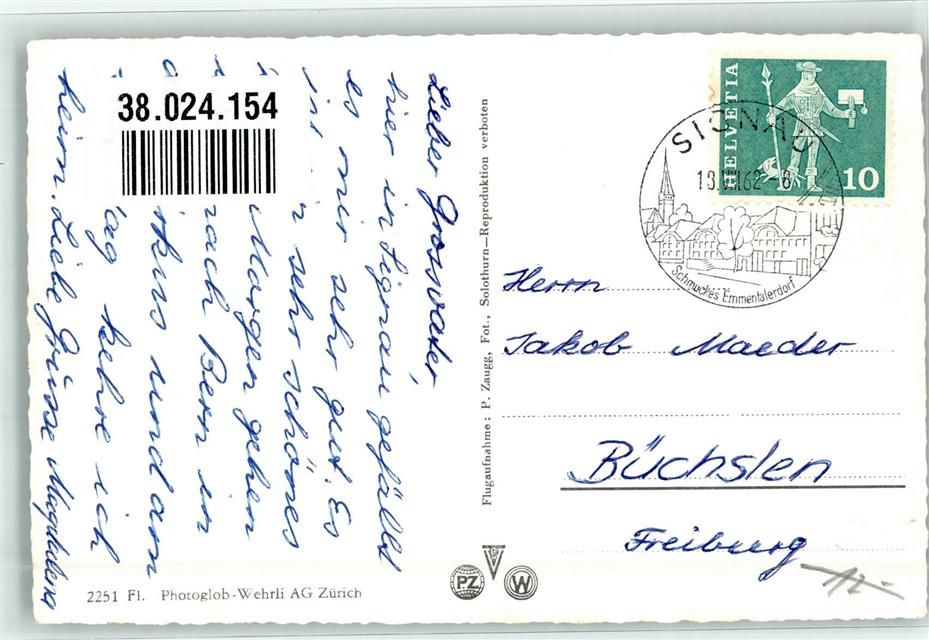 Lieber Grossvater,
hier in Signau gefällt
es mir sehr gut. Es
ist sehr schönes
Morgen gehen
nach Bern in
Zirkus und am
tag kehre ich
heim. Liebe Grüsse Magdalena
38.024.154
2251 Fl. Photoglob-Wehrli AG Zürich
Flugaufnahme: P. Zaugg, Fot., Solothurn—Reproduktion verboten
PZ
W
HELVETIA
10
SIGNAU
18.VIII.62-8
Schmuckes Emmentalerdorf
Herrn
Jakob Maeder
Büchslen
Freiburg
12.-